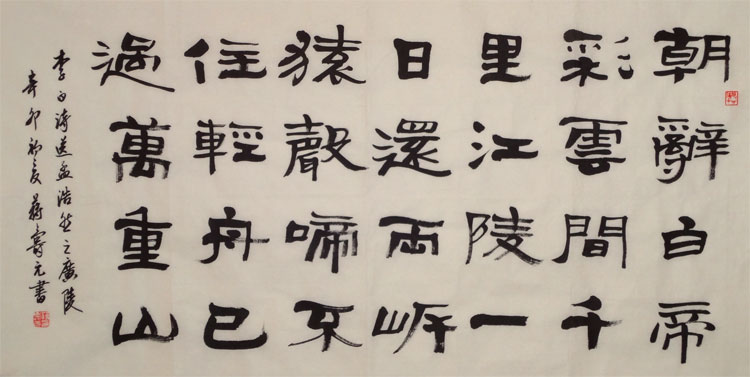 朝辭白帝
彩雲間千
里江陵一
日還兩岸
猿聲啼不
住輕舟已
過萬重山
李白詩送孟浩然之廣陵
辛卯初夏蔣壽元書